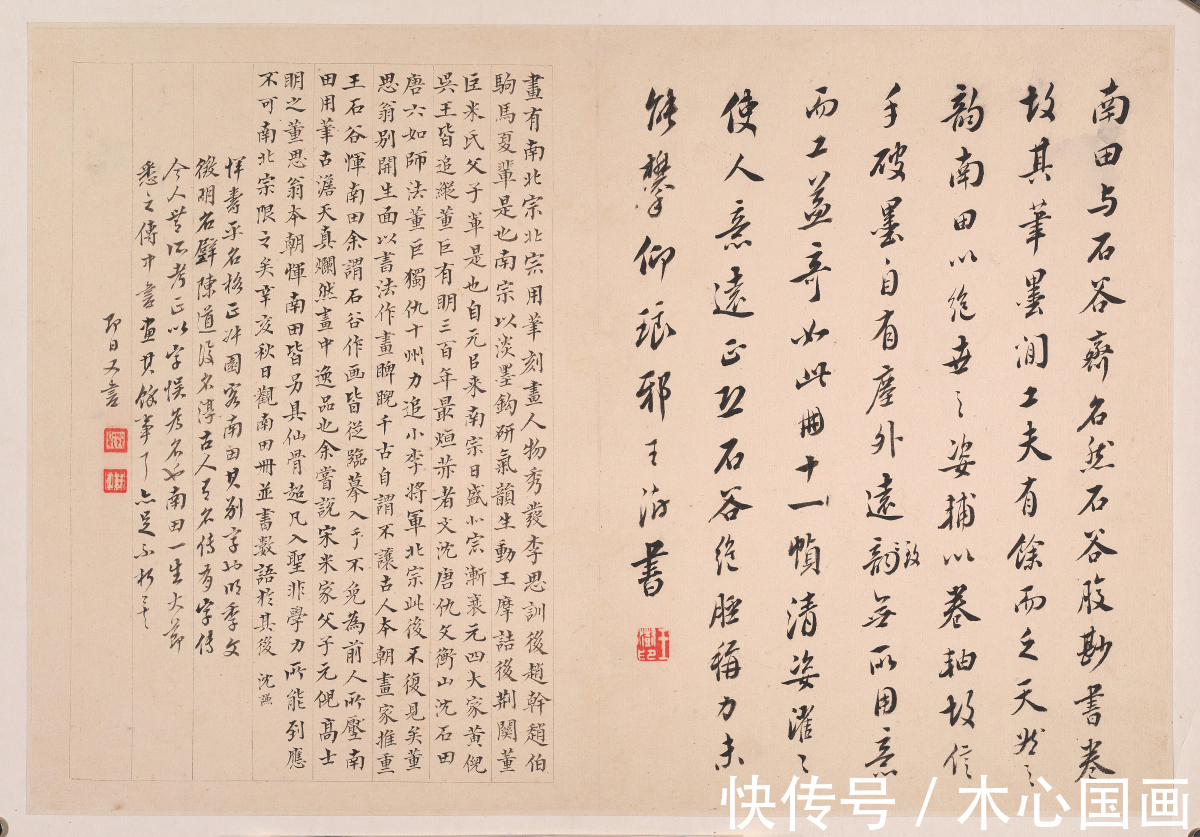 南田与石谷齊名然石谷腹尠書卷
故其筆墨間工夫有餘而乏天然之
韵南田以絶世之姿輔以卷軸故信
手破墨自有塵外遠韵致無所用意
而工益奇如此冊十一幀清姿濯〻
使人意遠正恐石谷絶脰稱力未
能攀仰琅邪王澍書
王澍印
畫有南北宗北宗用筆刻畫人物秀發李思訓後趙幹趙伯
駒馬夏輩是也南宗以淡墨鈎研氣韻生動王摩詰後荆關董
巨米氏父子軰是也自元㠯来南宗日盛小宗漸衰元四大家黄倪
吳王皆追蹤董巨有明三百年最烜赫者文沈唐仇文衡山沈石田
唐六如師法董巨獨仇十州力追小李將軍北宗此後不復見矣董
思翁别開生面以書法作畫睥睨千古自謂不讓古人本朝畫家推重
王石谷惲南田余謂石谷作画皆從臨摹入手不免為前人所壓南
田用筆古澹天真爛然畫中逸品也余嘗説宋米家父子元倪高士
明之董思翁本朝惲南田皆另具仙骨超凡入聖非學力所能到應
不可南北宗限之矣辛亥秋日觀南田冊並書數語於其後 沈
惲壽平名格正叔園客南田其别字也明季文
徵明名璧陳道復名淳古人有名傳有字傳
今人無所考正以字悮為名也南田一生大節
悉之傳中書画其餘事了亦足不朽矣
即日又書
快传号 / 木心国画